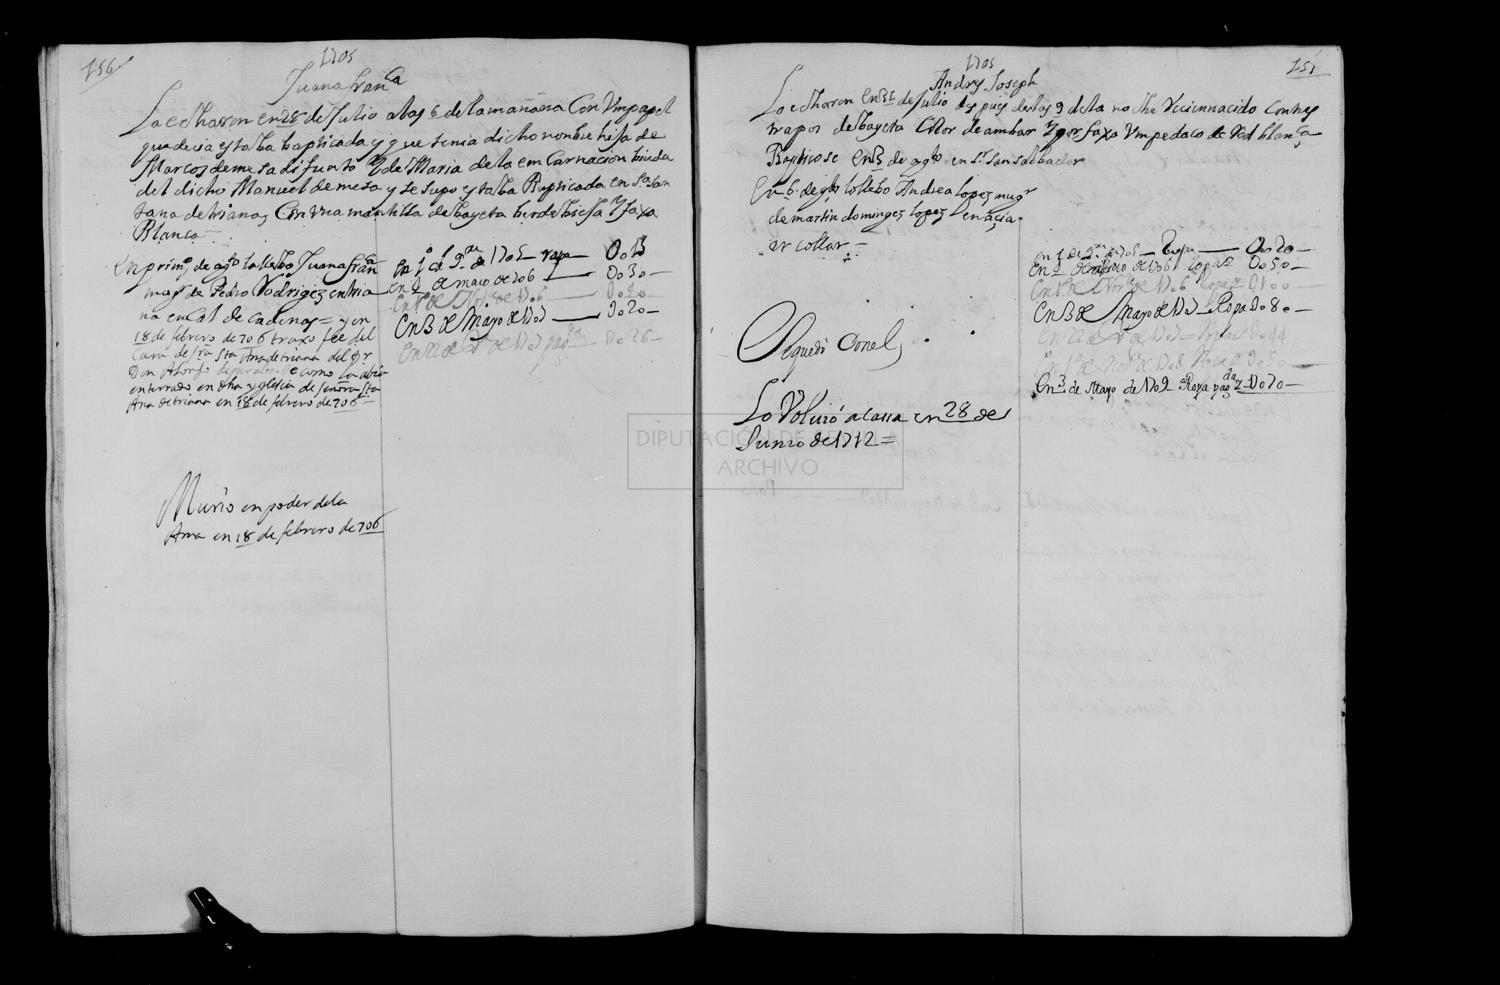 156
1705
Juana Franca
La echaron en 28 de Julio a las 6 de la mañana Con Vm papel
que desia estaba baptiçada y que tenia dicho nombre hija de
Marcos de mesa difunto Y de Maria de la emCarnaçion biuda
del dicho Manuel de mesa y se supo estaba Baptiçada en Sa San
tana de triana, Con Vna mantilla de bayeta berde biexa Y faxa
Blanca
en primo de agto la llebo Juana franca
mugr de Pedro Rodrigez en tria
na en Cal de Cadenas = y en
18 de febrero de 706 traxo fee del
Cura de sra Sta Ana de triana del Sr
Don Alonso de como la abia
enterrado en dha yglesia de señora sta
Ana de triana en 18 de febrero de 706
en 1o de 9re de 1705 ropa 0o15
en 1 de março de 706 0o30
en 1o de Nov. de 1706
en 3 de Mayo de 1707 0o20
en 22 de de 1707 pagda 0o26
Murio en poder de la
Ama en 18 de febrero de 706
1705
157
Andres Joseph
Lo echaron en 31 de Julio despues de las 9 de la noche Reciennacido Con tres
trapos de bayeta Color de ambar Y por faxa Vm pedaco de Red blanca
Baptiçose en 3 de agto en Sr San salbador
en 6 de gto lo llebo Andrea Lopez mugr
de martin domingez lopez en açia
er collar =
en 1 de 9re de 1705 Ropa 0o20
en 1 de março de 1706 ropa 0o50
en 1o de Nov de 1706 Ropa 0100
en 3 de Mayo de 1707 Ropa 0o80
en 22 de de 1707 = Ropa 0o44
en 1o de Nov de 1708 Ropa 0o50
en 3 de Mayo de 1709 Ropa pagda 0o70
Sequedò Con el
Lo Voluió a Cassa en 28 de
Junio de 1712 =
DIPUTACIÓN DE SEVILLA
ARCHIVO